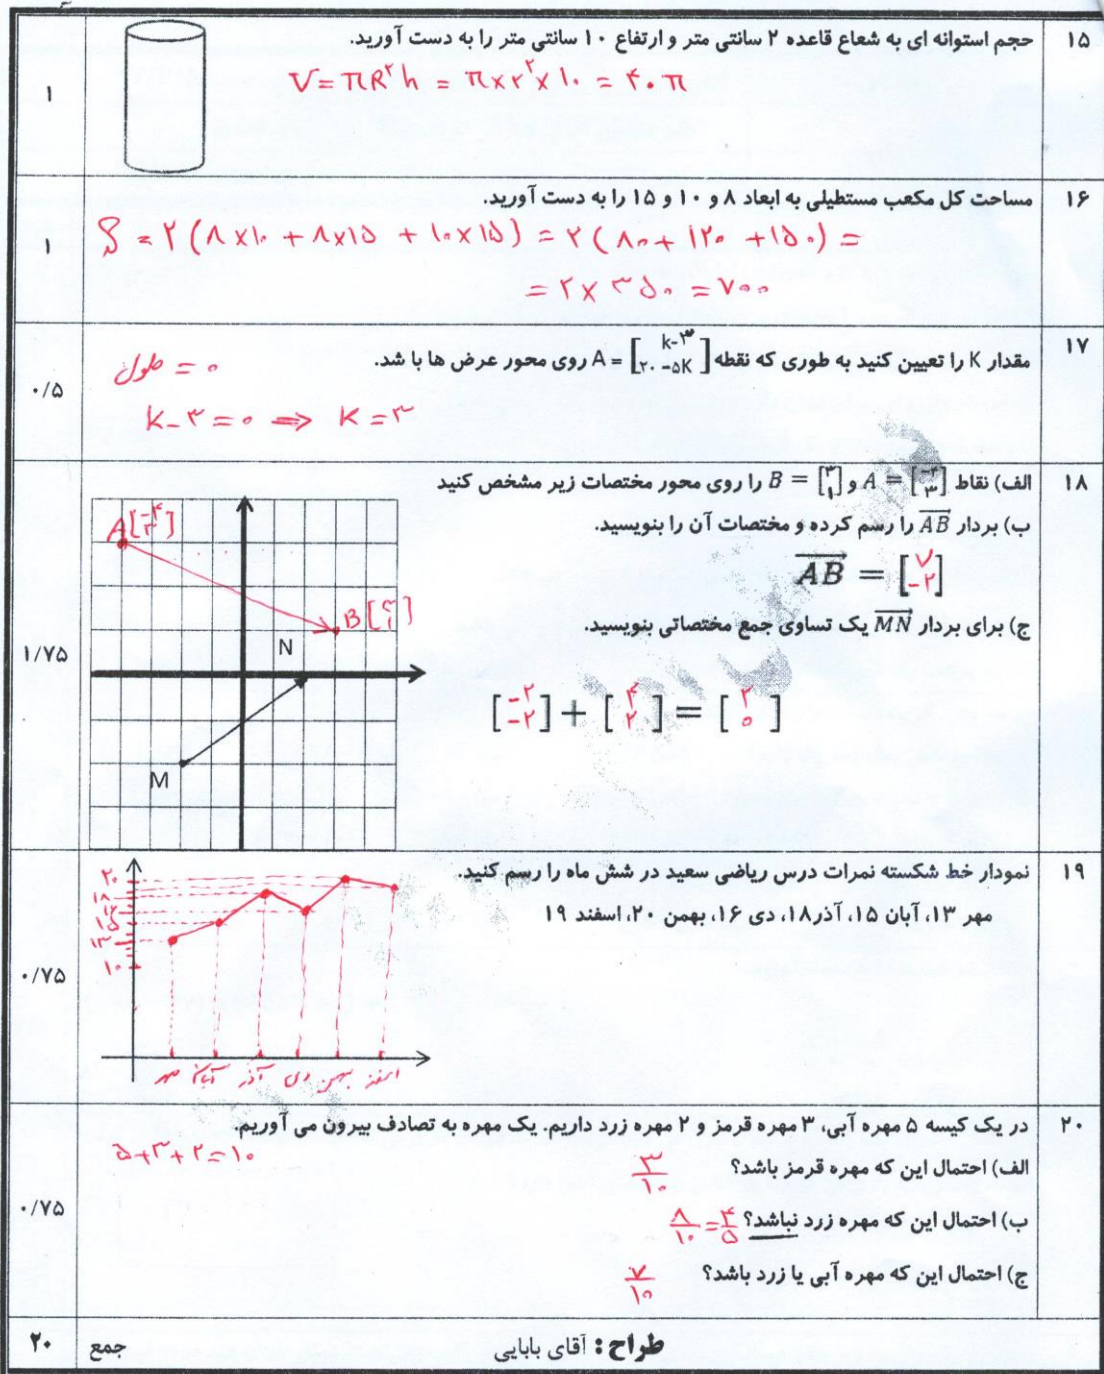 ۱۵ حجم استوانه ای به شعاع قاعده ۲ سانتی متر و ارتفاع ۱۰ سانتی متر را به دست آورید.
V = πR²h = π×۲²×۱۰ = ۴۰π
۱
۱۶ مساحت کل مکعب مستطیلی به ابعاد ۸ و ۱۰ و ۱۵ را به دست آورید.
S = ۲(۸×۱۰ + ۸×۱۵ + ۱۰×۱۵) = ۲(۸۰ + ۱۲۰ + ۱۵۰) =
= ۲×۳۵۰ = ۷۰۰
۱
۱۷ مقدار K را تعیین کنید به طوری که نقطه A = [k-۳ ۲۰-۵K] روی محور عرض ها با شد.
طول = ۰
k-۳ = ۰ ⟹ K = ۳
۰/۵
۱۸ الف) نقاط A = [-۴ ۳] و B = [۳ ۱] را روی محور مختصات زیر مشخص کنید
ب) بردار AB را رسم کرده و مختصات آن را بنویسید.
AB = [۷ -۲]
ج) برای بردار MN یک تساوی جمع مختصاتی بنویسید.
[-۲ -۲] + [۴ ۲] = [۲ ۰]
A[-۴ ۳]
B[۳ ۱]
N
M
۱/۷۵
۱۹ نمودار خط شکسته نمرات درس ریاضی سعید در شش ماه را رسم کنید.
مهر ۱۳، آبان ۱۵، آذر۱۸، دی ۱۶، بهمن ۲۰، اسفند ۱۹
۲۰
۱۸
۱۵
۱۳
۱۰
مهر آبان آذر دی بهمن اسفند
۰/۷۵
۲۰ در یک کیسه ۵ مهره آبی، ۳ مهره قرمز و ۲ مهره زرد داریم. یک مهره به تصادف بیرون می آوریم.
۵+۳+۲=۱۰
الف) احتمال این که مهره قرمز باشد؟ ۳/۱۰
ب) احتمال این که مهره زرد نباشد؟ ۸/۱۰ = ۴/۵
ج) احتمال این که مهره آبی یا زرد باشد؟ ۷/۱۰
۰/۷۵
طراح: آقای بابایی
جمع ۲۰